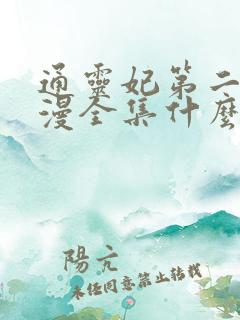 通靈妃第二
漫全集什麼
陽亢
未經同意禁止轉載